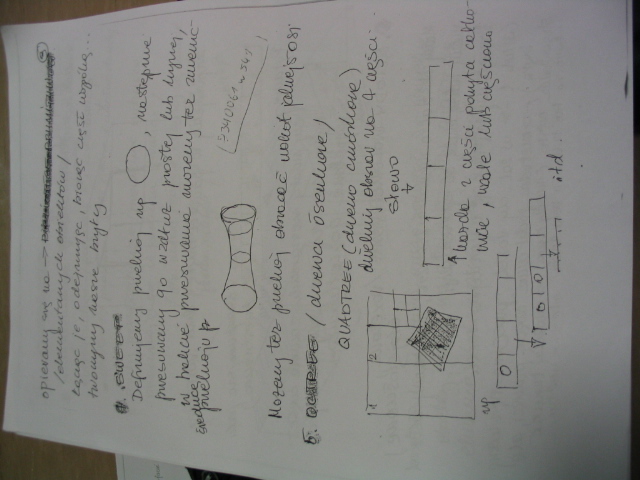 3
opieramy się na →
/elementarnych obiektów/
Łącząc je, odejmując, biorąc część wspólną...
tworzymy nasze bryły
4. SWEEP
Definiujemy przekrój np , następnie
przesuwamy go wzdłuż prostej lub krzywej,
w trakcie przesuwania możemy też zmienić
średnicę przekroju
Możemy też przekrój obracać wokół jakiejś osi
5. OCTREE /drzewa ósemkowe/
QUADTREE (drzewo czwórkowe)
dzielimy obszar na 4 części
słowo
1 2
↑ każda z części pokryta całko-
wicie, wcale lub częściowo
np 0
0 0
itd.